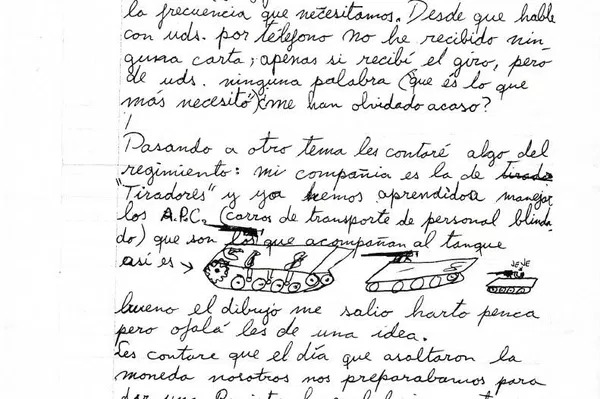 la frecuencia que necesitamos. Desde que hable
con uds. por teléfono no he recibido nin_
guna carta; apenas si recibí el giro, pero
de uds. ninguna palabra (que es lo que
más necesito") ¿me han olvidado acaso?
Pasando a otro tema les contaré algo del
regimiento: mi compañia es la de tirado
"Tiradores" y ya hemos aprendidoa manejar
los A.P.C. (carros de transporte de personal blinda
do) que son los que acompañan al tanque
así es →
JEJE
bueno el dibujo me salio harto penca
pero ojalá les de una idea.
Les contare que el día que asaltaron la
moneda nosotros nos preparabamos para